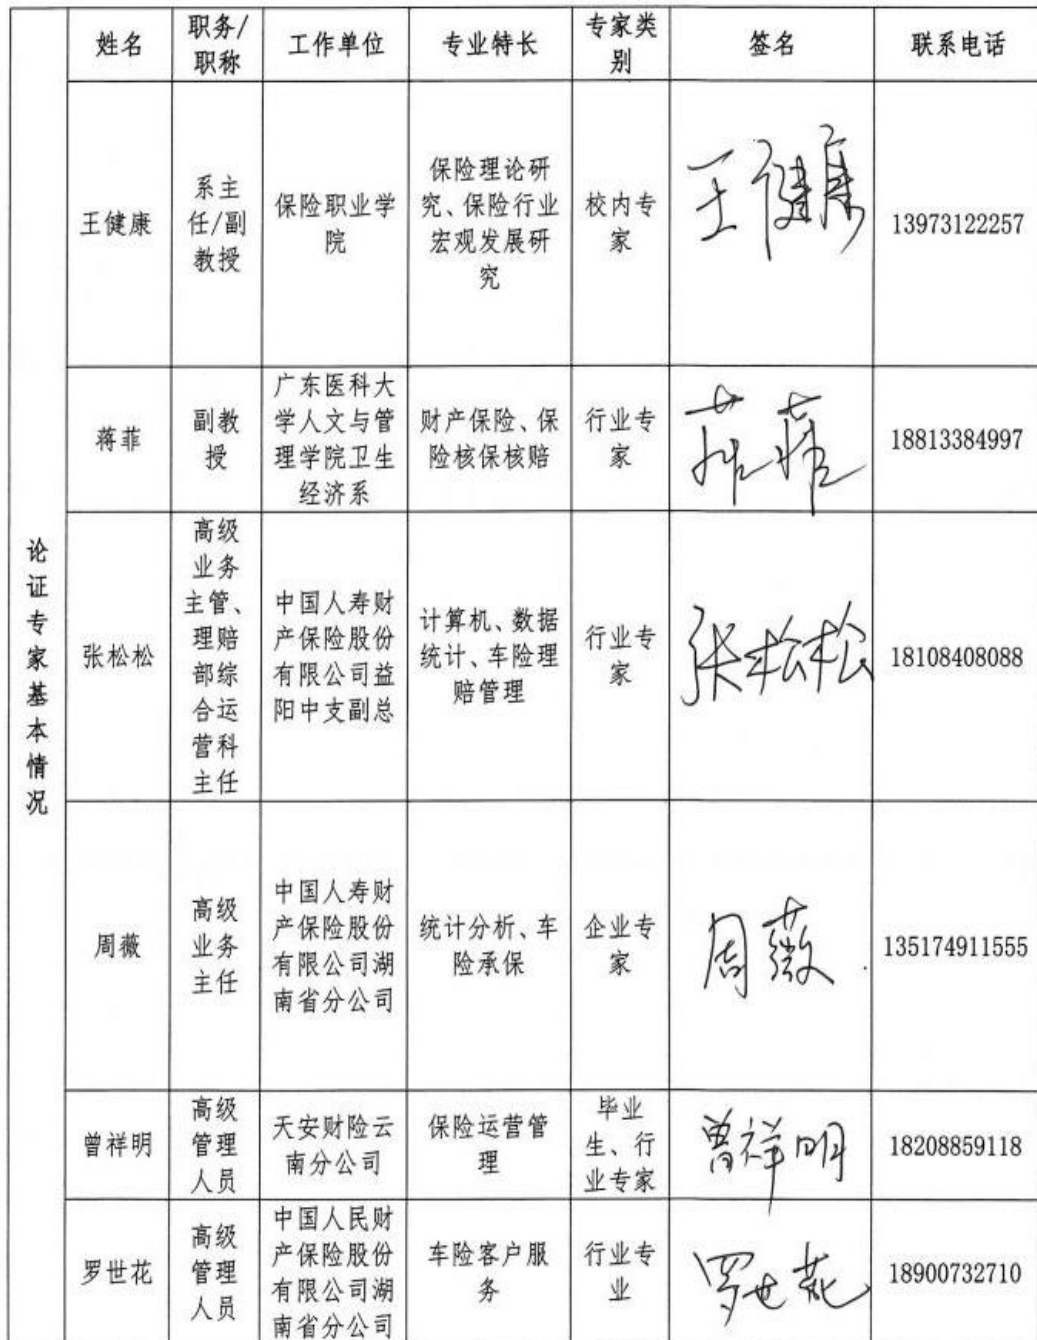 姓名
职务/
职称
工作单位
专业特长
专家类
别
签名
联系电话
论证专家基本情况
王健康
系主
任/副
教授
保险职业学
院
保险理论研
究、保险行业
宏观发展研
究
校内专
家
王健康
13973122257
蒋菲
副教
授
广东医科大
学人文与管
理学院卫生
经济系
财产保险、保
险核保核赔
行业专
家
蒋菲
18813384997
张松松
高级
业务
主管、
理赔
部综
合运
营科
主任
中国人寿财
产保险股份
有限公司益
阳中支副总
计算机、数据
统计、车险理
赔管理
行业专
家
张松松
18108408088
周薇
高级
业务
主任
中国人寿财
产保险股份
有限公司湖
南省分公司
统计分析、车
险承保
企业专
家
周薇
135174911555
曾祥明
高级
管理
人员
天安财险云
南分公司
保险运营管
理
毕业
生、行
业专家
曾祥明
18208859118
罗世花
高级
管理
人员
中国人民财
产保险股份
有限公司湖
南省分公司
车险客户服
务
行业专
业
罗世花
18900732710